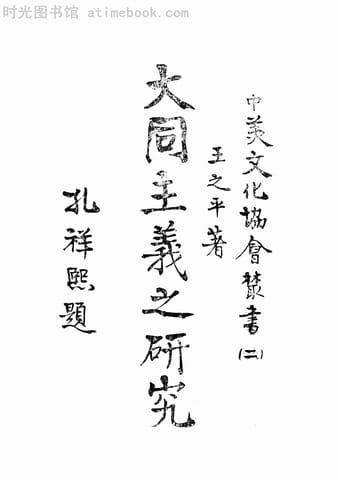 时光图书馆 atimebook.com
中美文化協會叢書(二)
王之平著
大同主義之研究
孔祥熙題